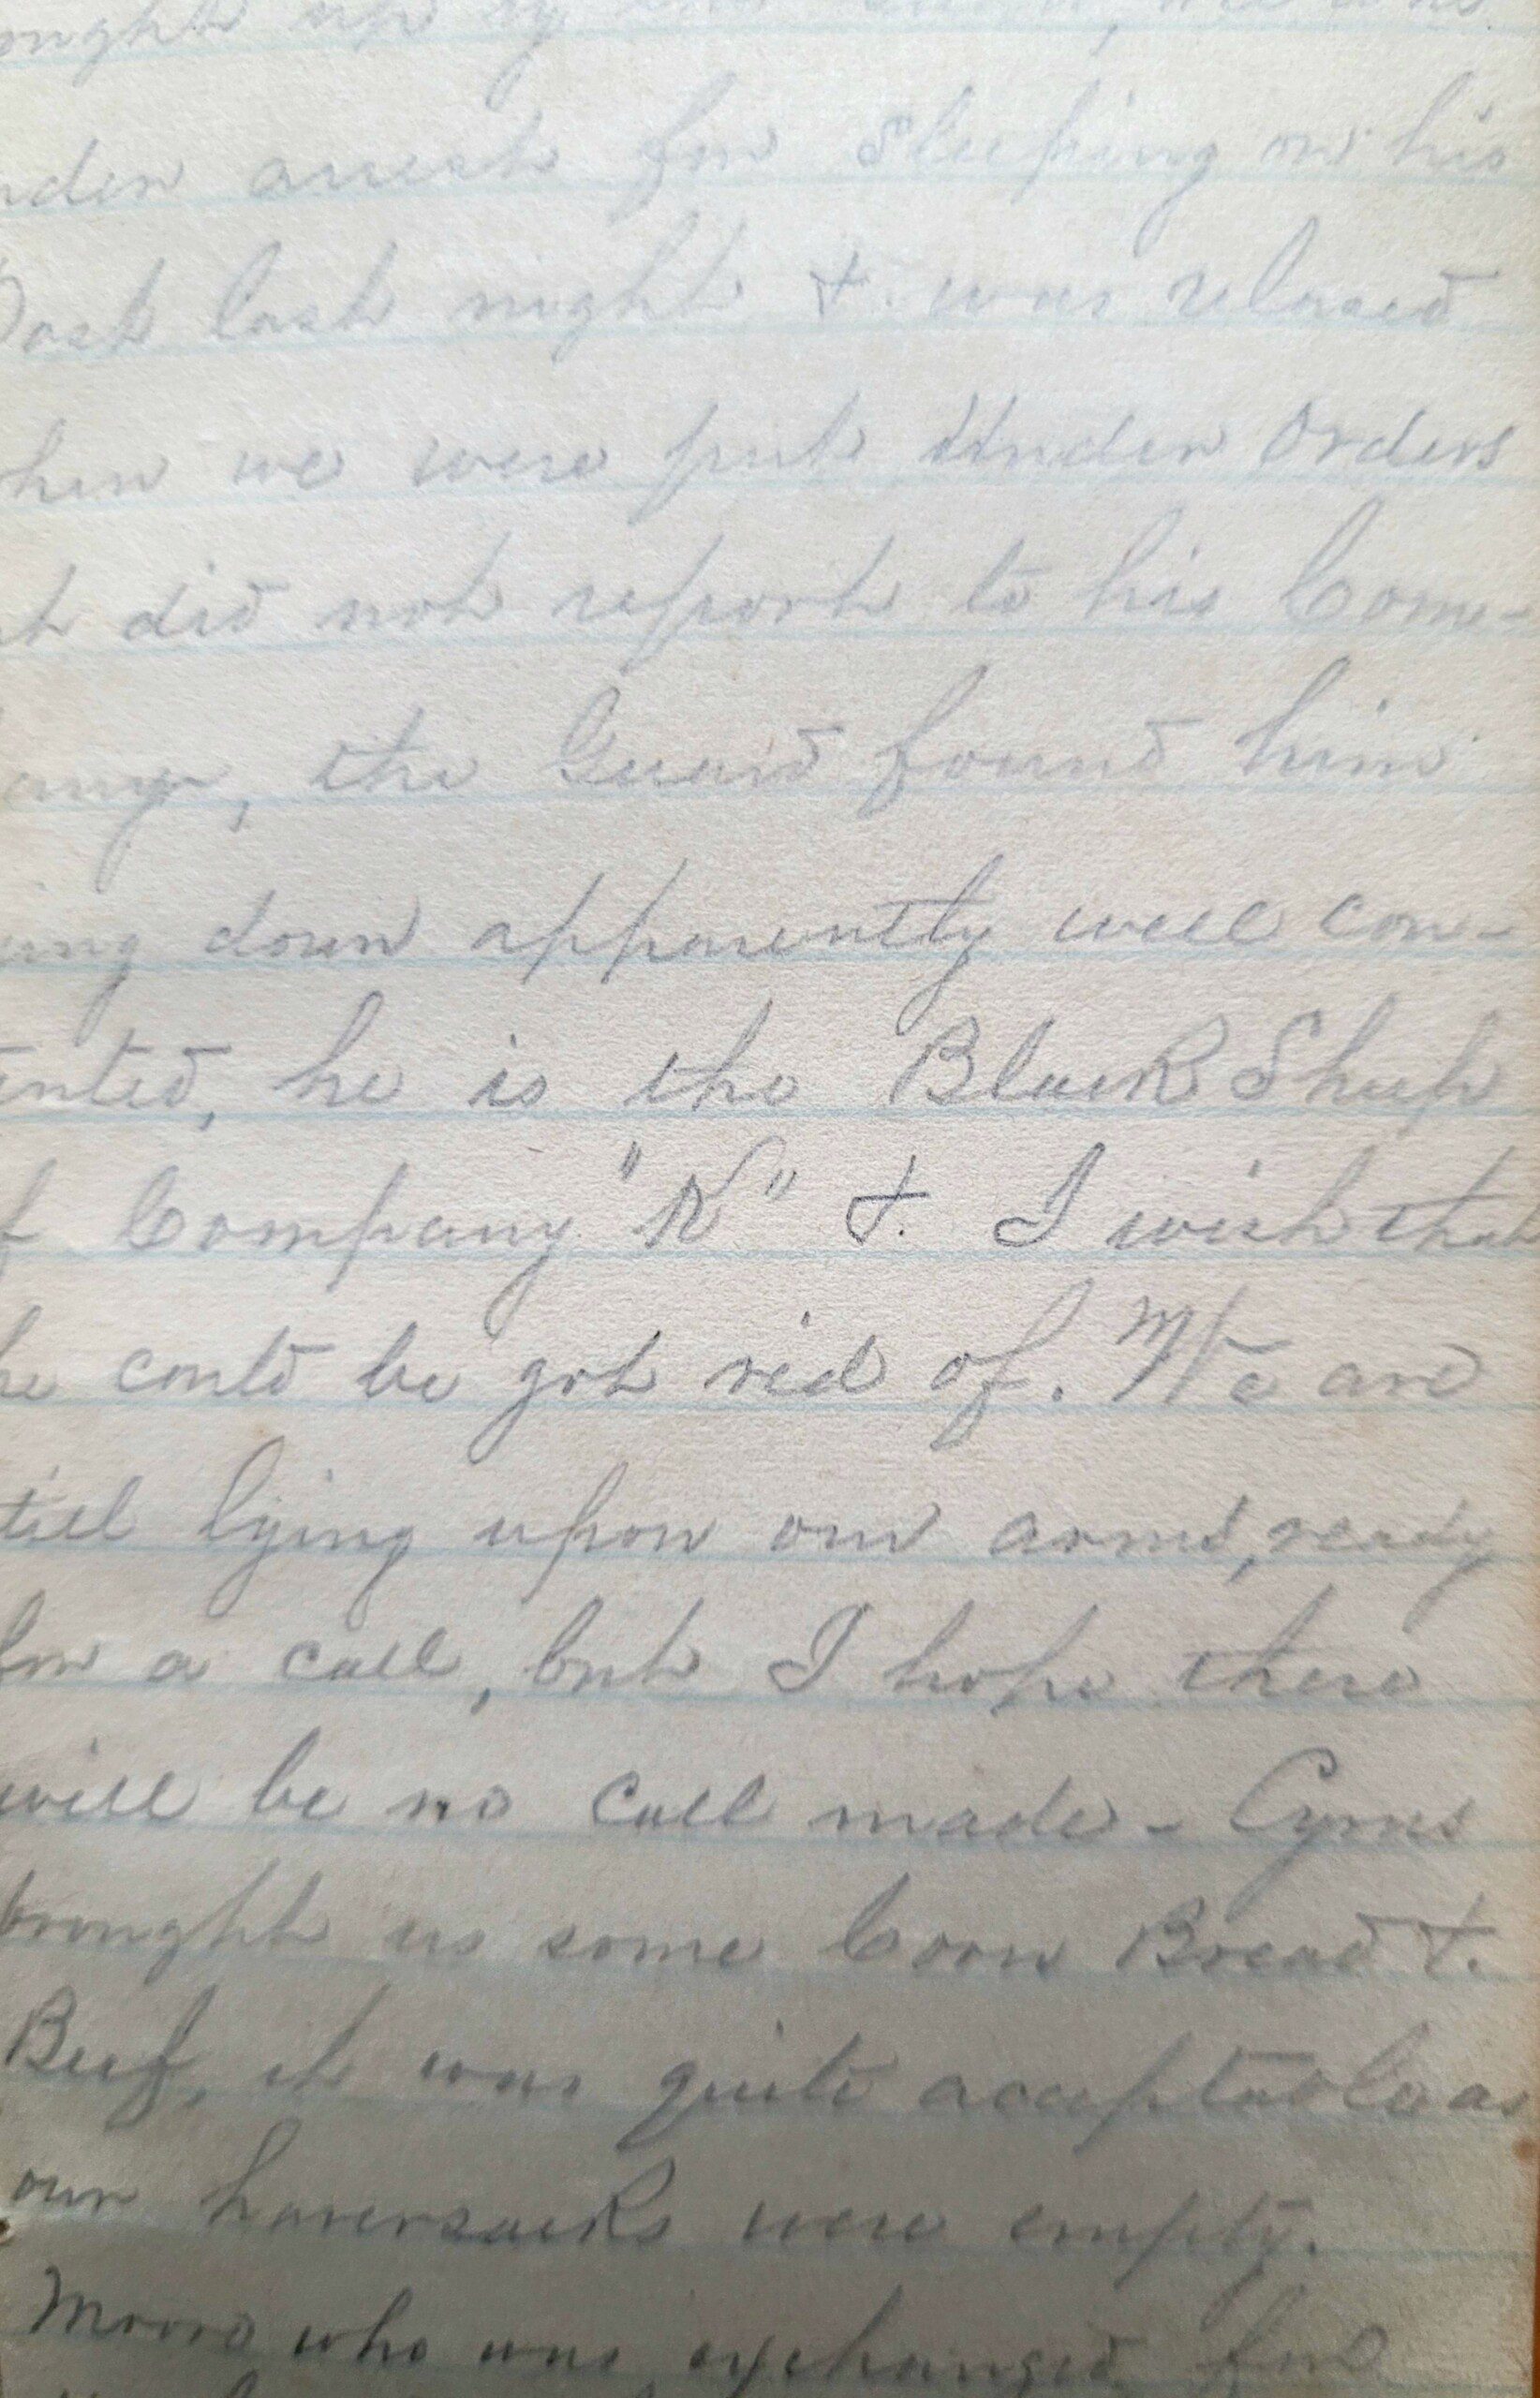 ought up by the Guard, he was
nder arrest for Sleeping on his
Post last night &. was relased
hen we were put Under Orders
t did not report to his Com-
any, the Guard found him
ing down apparently well con-
tented, he is the Black Sheep
f Company "K" &. I wish that
he could be got rid of. We are
till lying upon our arms, ready
for a call, but I hope there
will be no Call made - Cyrus
brought us some Corn Bread &.
Beef, it was quite acceptable as
our haversacks were empty.
who was exchanged for